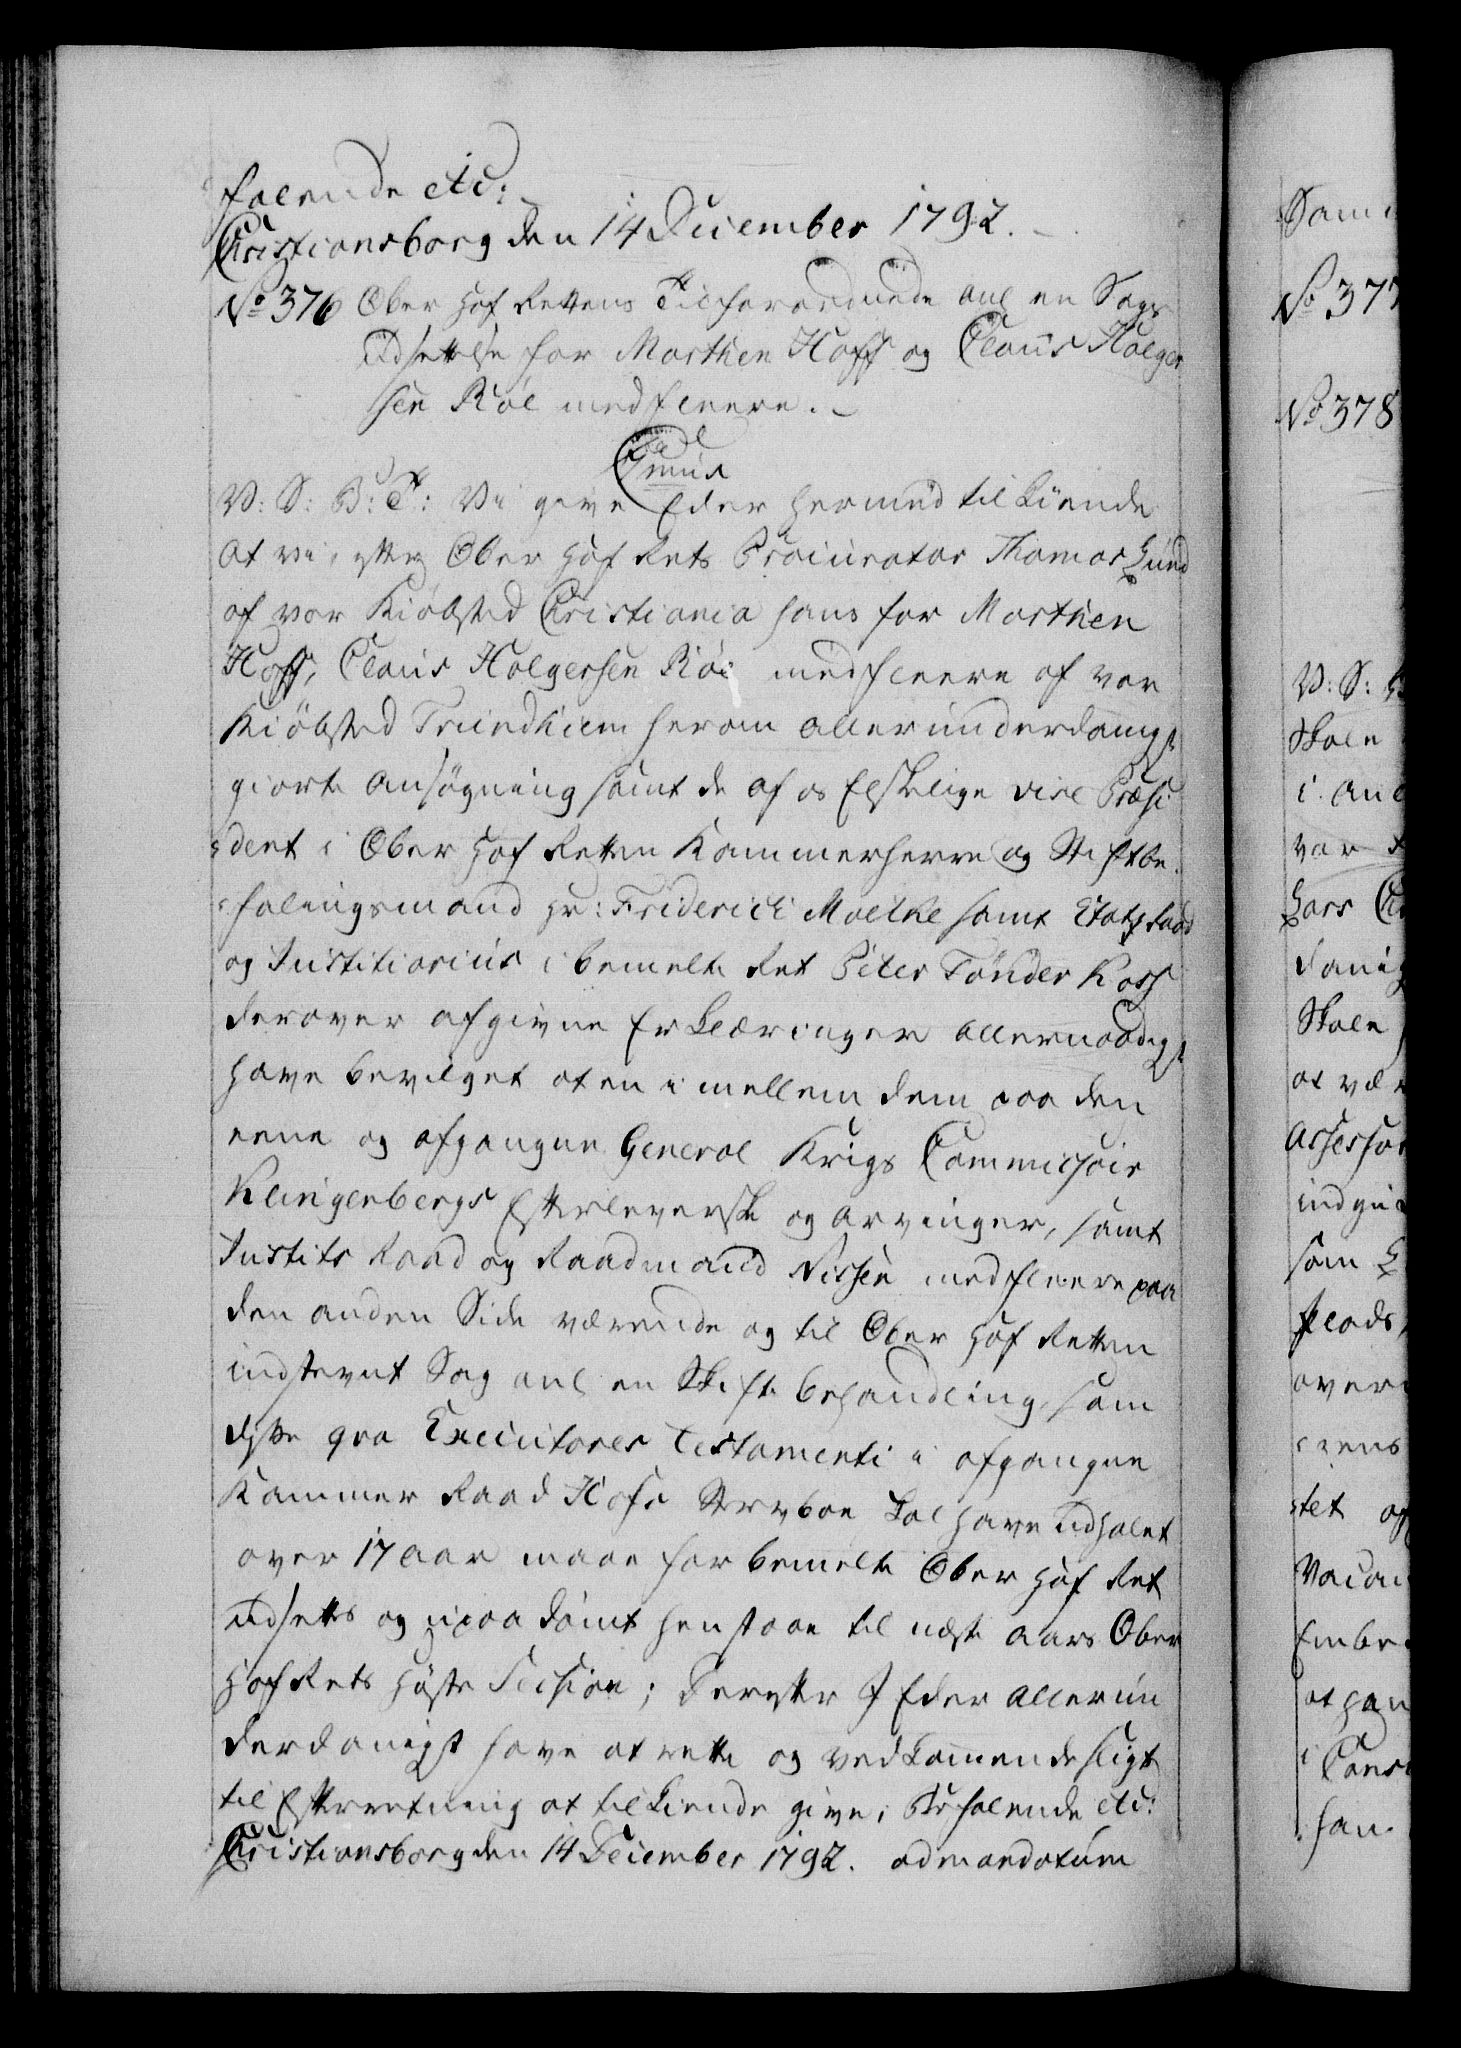 falende etc:
Christiansborg den 14 December 1792.
No 376 Ober Hof Rettens Tilforordnede anl en Sags
Udsættelse for Morthen Hoff og Claus Holger
sen Røe med fleere.
V: S: B: T: Vi give Eder hermed tilkiende
at vi efter Ober Hof Rets Procurator Thomas Lund
af vor Kiøbsted Christiania hans for Morthen
Hoff, Claus Holgersen Røe med fleere af vor
Kiøbsted Trundhiem herom allerunderdanigst
giorte Ansøgning samt de af os Elskelige vice Præsi
dent i Ober Hof Retten Kammerherre og Stiftbe
falingsmand Hr: Friderich Moltke samt Etatsraad
og Justitiarius i bemelte Ret Peter Tønder Koss
derover afgivne Erklæringer allernaadigst
have bevilget at en imellem dem paa den
eene og afgangne General Krigs Commissair
Klingenbergs Efterleverske og Arvinger, samt
Justits Raad og Raadmand Nissen med fleere paa
den anden Side værende og til Ober Hof Retten
indstevnt Sag anl en Skifte behandling, som
disse qva Executores Testamenti i afgangne
Kammer Raad Hofs Stervboe skal have udhalet
over 17 Aar maae for bemelte Ober Hof Ret
udsættes og upaadømt henstaae til næste Aars Ober
Hof Rets Høste Session; Derefter I Eder allerun
derdanigst have at rette og vedkommende sligt
til Efterretning at tilkiende give, Befalende etc:
Christiansborg den 14 December 1792. ad mandatum
Sam
No 377
No 378
V: S:
Skole
i Anl
vor
Lars
danig
Skole
at væ
Assessor
som
plads,
over
tet
Vacan
Embe
at han
i
han